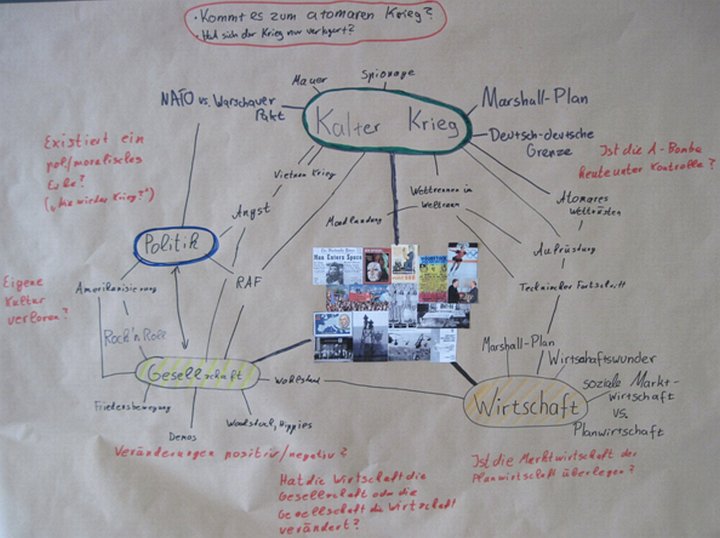 · Kommt es zum atomaren Krieg?
· Hat sich der Krieg nur verlagert?
Mauer
Spionage
NATO vs. Warschauer
Pakt
Kalter Krieg
Marshall-Plan
Deutsch-deutsche
Grenze
Existiert ein
pol/moralisches
Erbe?
("Nie wieder Krieg?")
Ist die A-Bombe
heute unter Kontrolle?
Vietnam Krieg
Wettrennen im
Weltraum
Atomares
Wettrüsten
Angst
Mondlandung
Politik
Aufrüstung
Man Enters Space
Eigene
Kultur
verloren?
Amerikanisierung
RAF
Technischer Fortschritt
Rock'n Roll
Marshall-Plan
Wirtschaftswunder
Gesellschaft
Wohlstand
soziale Markt-
wirtschaft
vs.
Planwirtschaft
Wirtschaft
Friedensbewegung
Woodstock, Hippies
Demos
Veränderungen positiv/negativ?
Hat die Wirtschaft die
Gesellschaft oder die
Gesellschaft die Wirtschaft
verändert?
Ist die Marktwirtschaft der
Planwirtschaft überlegen?